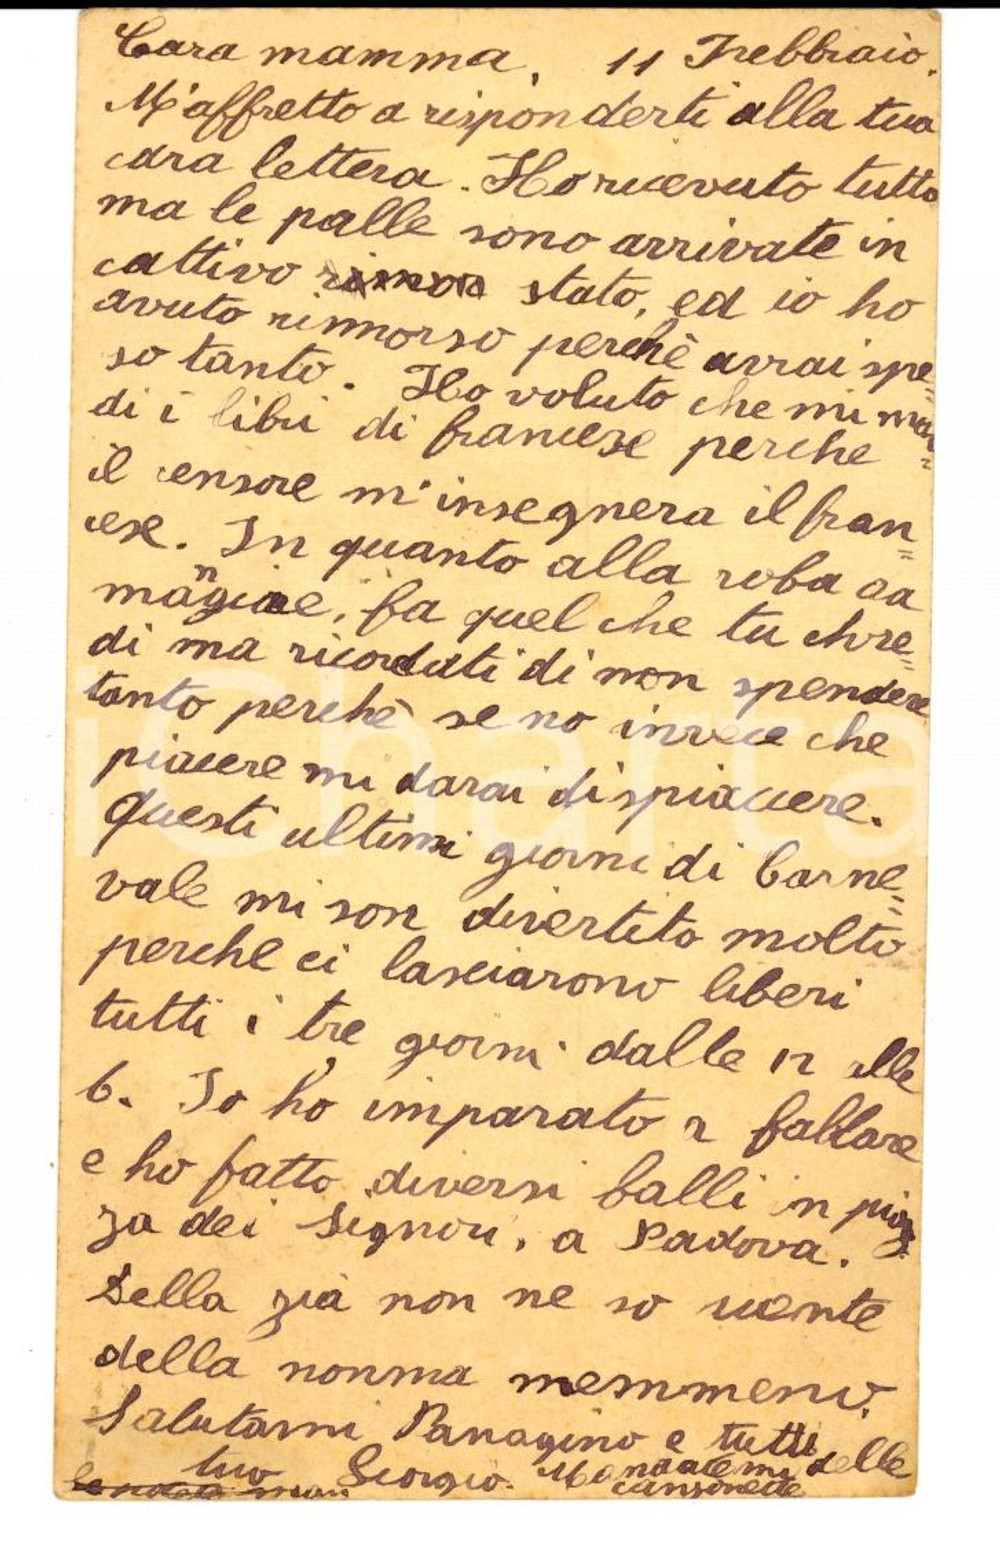 Cara mamma, 11 Frebbraio.
M'affretto a risponderti alla tua
cara lettera. Ho ricevuto tutto
ma le palle sono arrivate in
cattivo stato, ed io ho
avuto rimorso perchè avrai spe=
so tanto. Ho voluto che mi man=
di i libri di francese perche
il censore m'insegnera il fran=
cese. In quanto alla roba da
mangiae, fa quel che tu chre=
di ma ricordati di non spendere
tanto perchè se no invece che
piacere mi darai dispiaccere.
Questi ultimi giorni di Carne=
vale mi son divertito molto
perche ci lasciarono liberi
tutti i tre giorni dalle 12 alle
6. Io ho imparato a ballare
e ho fatto diversi balli in piaz=
za dei Signori, a Padova.
Della zia non ne so niente
della nonna memmeno.
Salutami Panagino e tutti
tuo Giorgio. Mandatemi delle
cansonette
iCharta